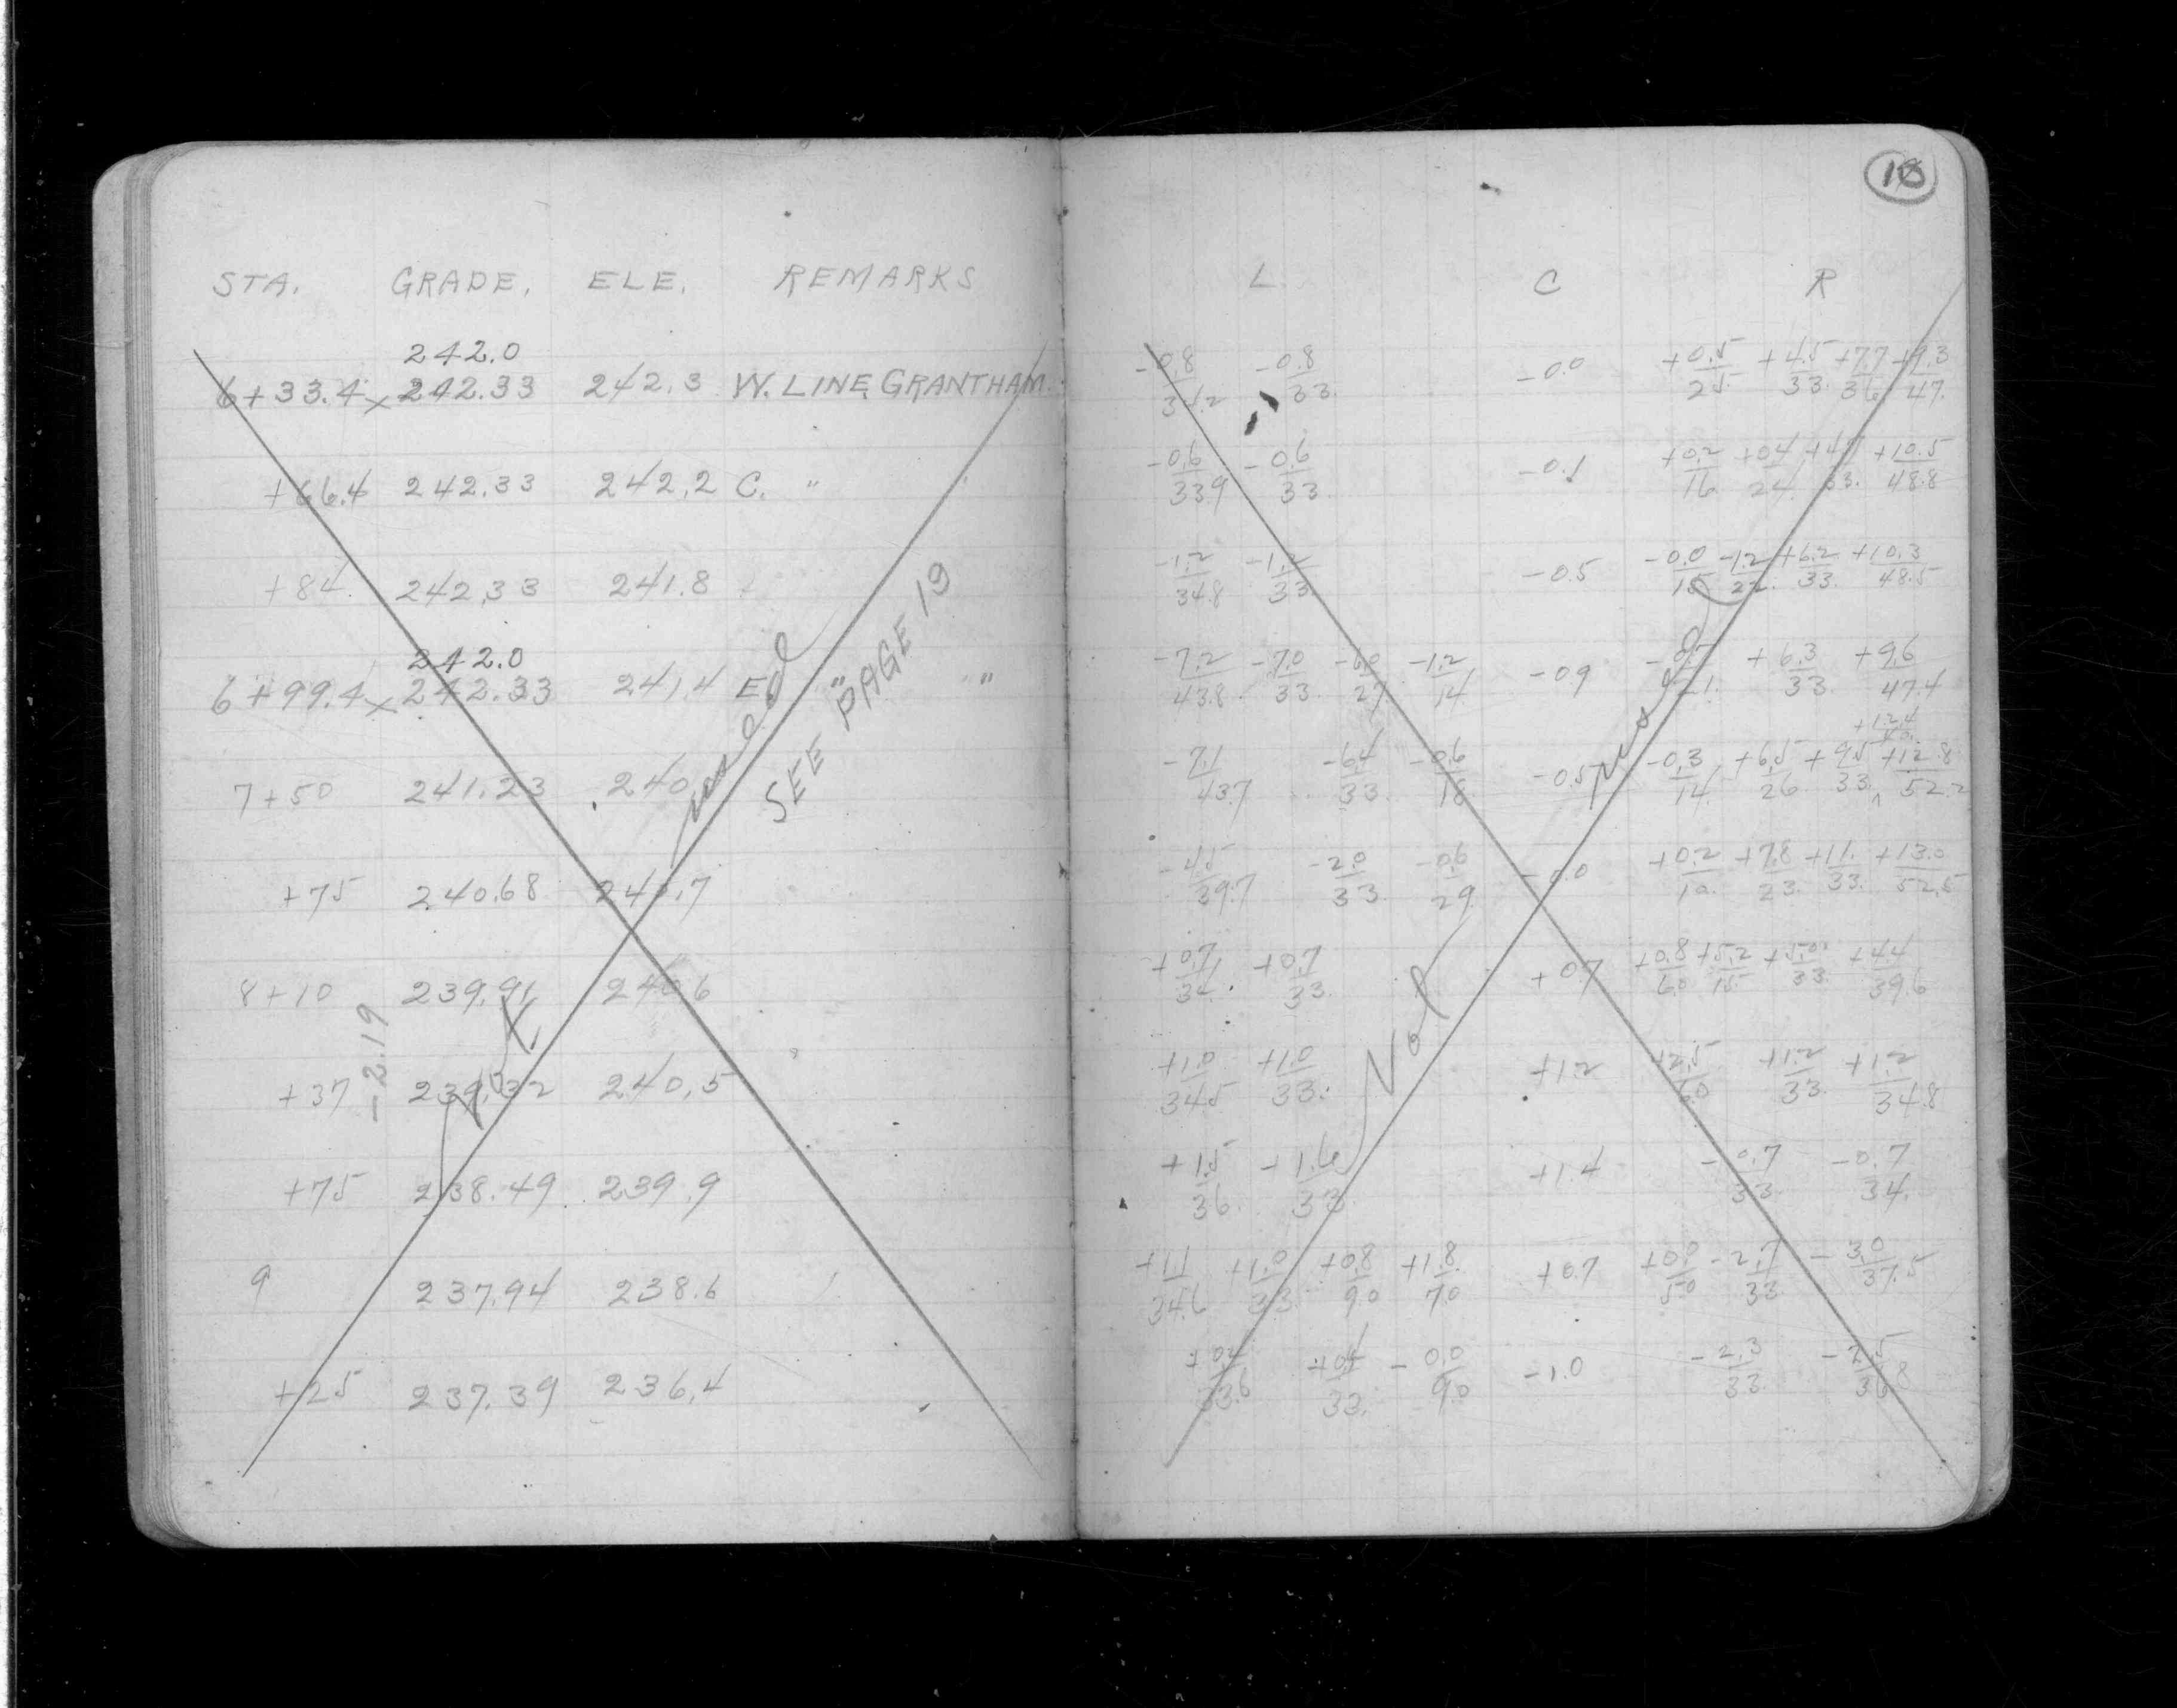 18
STA. GRADE. ELE. REMARKS L C R
242.0
6+33.4 x 242.33 242.3 W. LINE GRANTHAM -0.8/35.2 -0.8/33. -0.0 +0.5/25 +4.5/33. +7.7/36 +9.3/47.
+66.4 242.33 242.2 C. " -0.6/33.9 -0.6/33. -0.1 +0.2/16. +0.4/24. /33. +10.5/48.8
+84. 242.33 241.8 -1.2/34.8 -1.2/33 -0.5 -0.0/15 -1.2/22. +6.2/33. +10.3/48.5
242.0
6+99.4 x 242.33 241.4 E. " " -7.2/43.8 -7.0/33. -6.0/27 -1.2/14 -0.9 +6.3/33. +9.6/47.4
7+50 241.23 240. -7.1/43.7 -6.4/33. -0.6/18 -0.5 -0.3/14. +6.5/26. +9.5/33. +12.4 +12.8/52.2
+75 240.68 240.7 -4.5/39.7 -2.0/33. -0.6/29. -0.0 +0.2/10. +7.8/23. +11./33. +13.0/52.5
8+10 239.91 240.6 +0.7/34. +0.7/33. +0.7 +0.8/6.0 +5.2/15. +5.0/33. +4.4/39.6
-2.19
+37 239.32 240.5 +1.0/34.5 +1.0/33. +1.2 +2.5/6.0 +1.2/33. +1.2/34.8
+75 238.49 239.9 +1.5/36. +1.6/33 +1.4 -0.7/33. -0.7/34.
9 237.94 238.6 +1.1/34.6 +1.0/33 +0.8/9.0 +1.8/7.0 +0.7 +0.0/5.0 -2.7/33 -3.0/37.5
+25 237.39 236.4 +0.4/33.6 +0.4/33. -0.0/9.0 -1.0 -2.3/33. -2.5/36.8
Not used
SEE PAGE 19
Not used